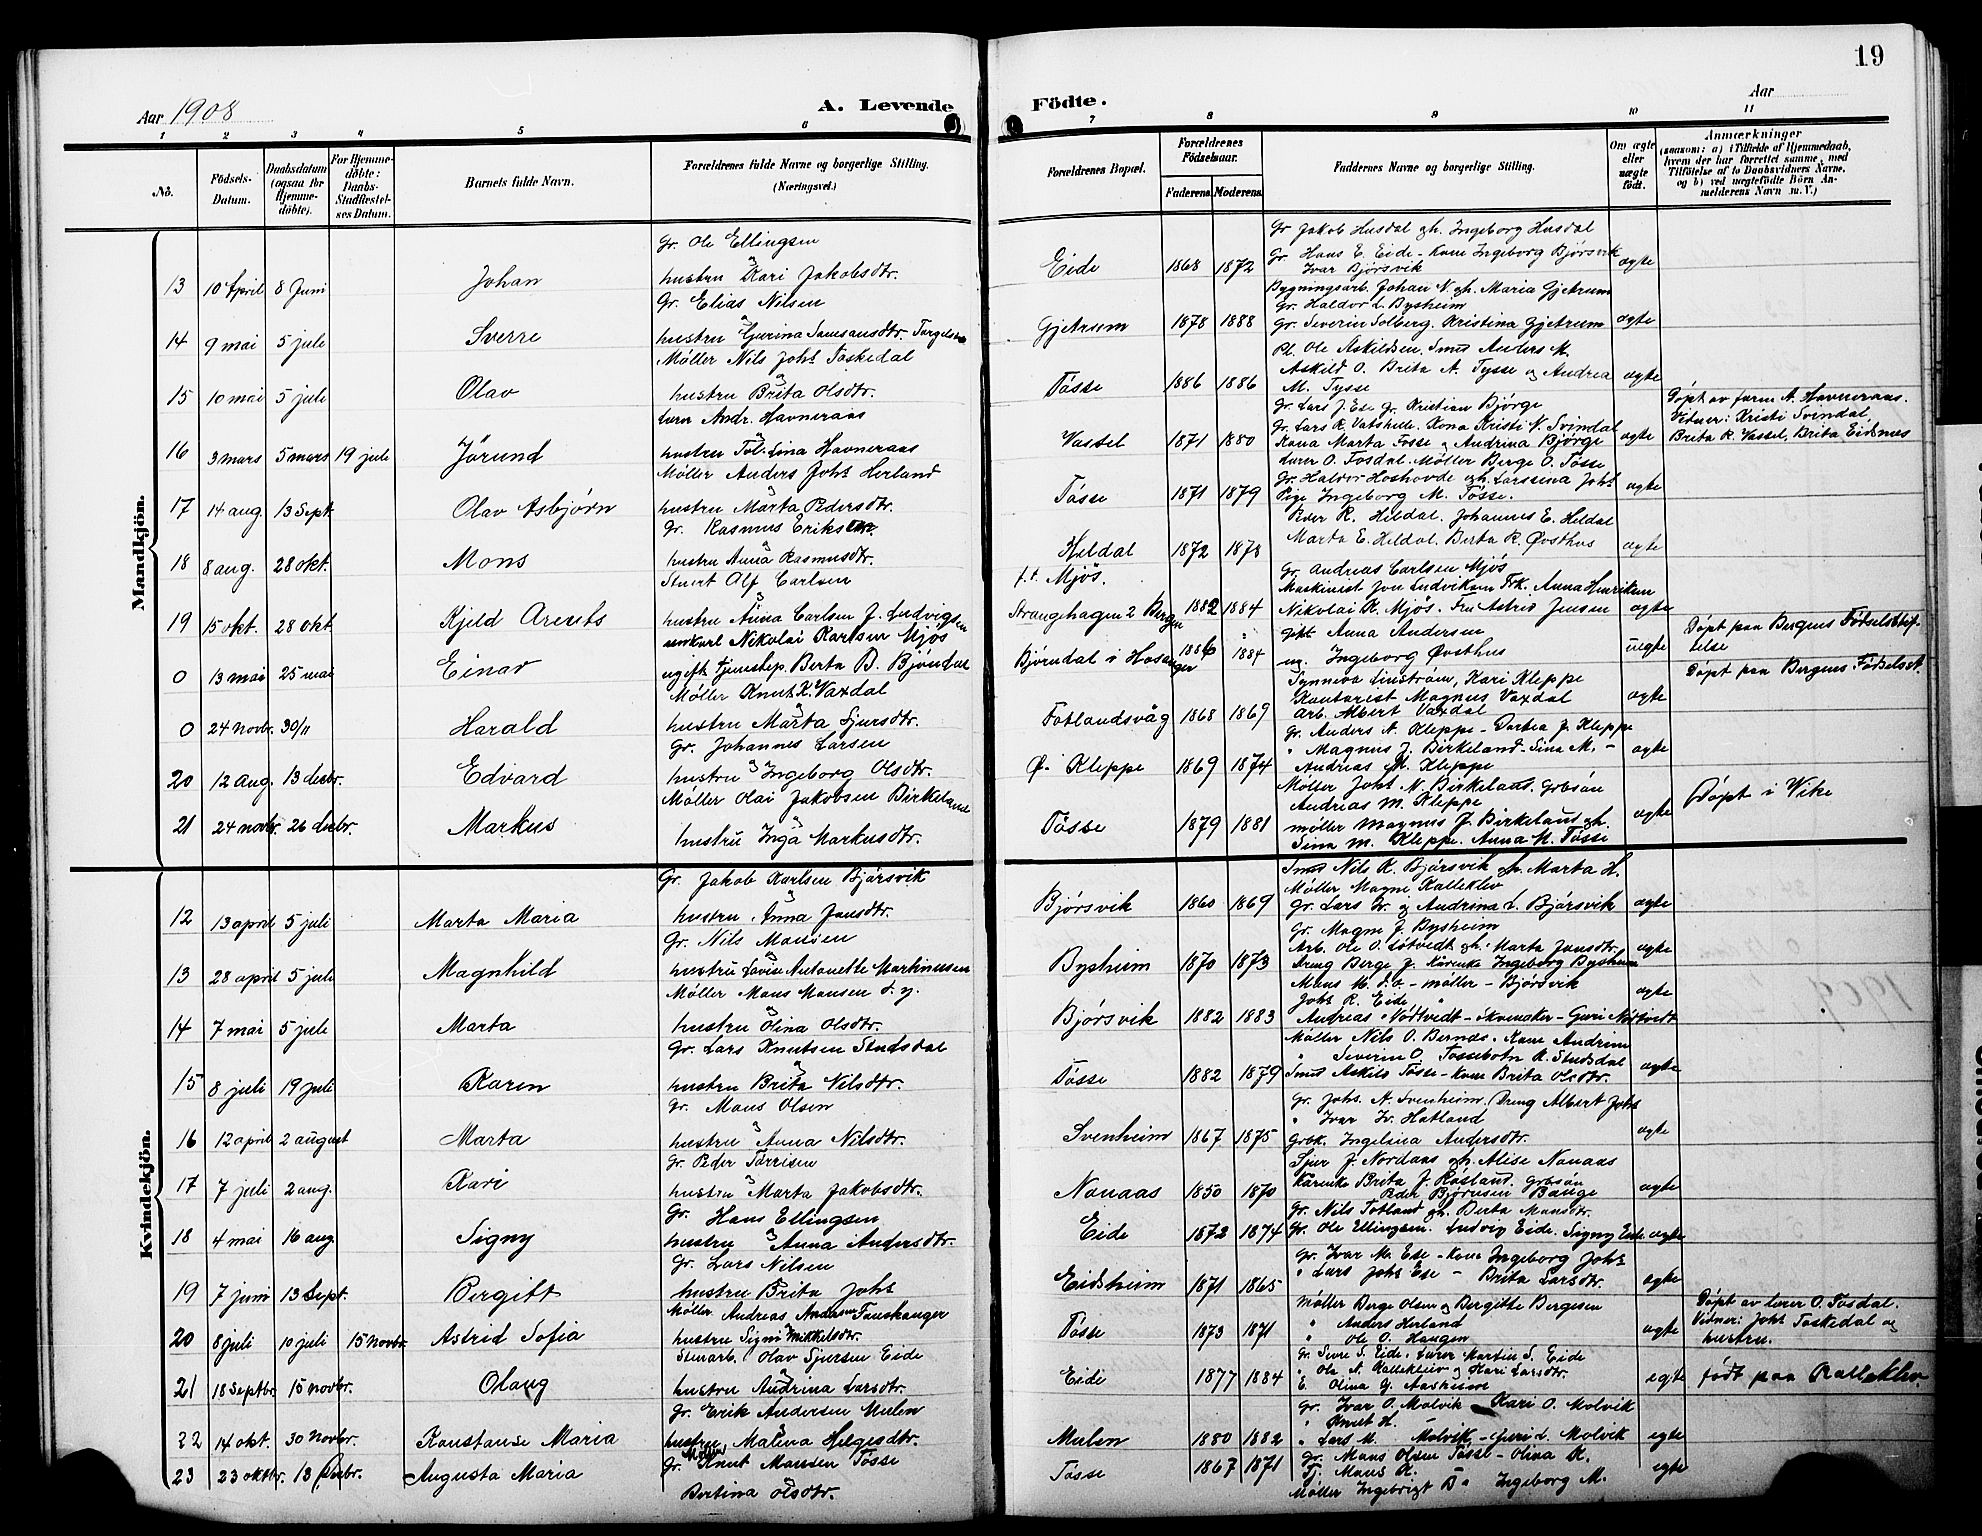 19
Aar 1908
A. Levende Födte.
Aar
1 2 3 4 5 6 7 8 9 10 11
No.
Födsels-Datum.
Daabsdatum (ogsaa for Hjemme-döbte).
For Hjemme-döbte: Daabs-Stadfæstel-ses Datum.
Barnets fulde Navn.
Forældrenes fulde Navne og borgerlige Stilling. (Næringsvei.)
Forældrenes Bopæl.
Forældrenes Födselsaar.
Faderens Moderens
Faddernes Navne og borgerlige Stilling.
Om ægte eller uægte födt.
Anmærkninger
(saasom: a) i Tilfælde af Hjemmedaab, hvem der har forrettet samme, med Tilföielse af to Daabsvidners Navne, og b) ved uægtefödte Börn Anmelderens Navn m. V.)
Mandkjön.
Gr. Ole Ellingsen
13 10 April 8 Juni Johan hustru Kari Jakobsdtr. Eide 1868 1872 ægte
Gr Jakob Husdal gh. Ingeborg Husdal
Gr. Hans E. Eide - Kone Ingeborg Bjørsvik
Ivar Bjørsvik
Gr. Elias Nilsen
14 9 mai 5 juli Sverre hustru Gjerina Samsonsdtr. Gjetrum 1878 1888 ægte
Bygningsarb. Johan N. gh. Maria Gjetrum
Gr. Haldor L. Bysheim
Gr. Severin Solberg. Kristina Gjetrum
Møller Nils Johs Toskedal
15 10 mai 5 juli Olav hustru Brita Olsdtr. Tösse 1886 1886 ægte
Pl. Ole Askildsen. Smed Anders M.
Askild O. Brita A. Tysse og Andrea
M. Tysse
Lærer Andr. Havneraas
16 3 mars 5 mars 19 juli Jørund hustru Lina Havneraas Vassel 1871 1880 ægte
Gr. Lars J. Ese gr. Kristian Bjørge
Gr. Lars R. Vatshelle. Kona Kristi N. Svindal
Kona Marta Tosse og Andrina Bjørge
Døpt av farm A. Havneraas.
Vidner: Kristi Svindal
Brita R. Vassel, Brita Eidsnes
Møller Anders Johs Herland
17 14 aug. 13 Sept. Olav Asbjørn hustru Marta Pedersdtr. Tösse 1871 1879 ægte
Lærer O. Tosdal. Møller Berge O. Tösse
Gr. Haldor Hoshovde gh. Larssina Johs
Pige Ingeborg M. Tösse.
Gr. Rasmus Eriksen
18 8 aug. 28 okt. Mons hustru Anna Rasmusdtr. Hildal 1872 1878 ægte
Peder R. Hildal. Johannes E. Hildal
Marta E. Hildal. Berta R. Øvsthus
Stuert Alf Carlsen
19 15 okt. 28 okt. Kjeld Arents hustru Anna Carlsen f. Ludvigsen f.t. Mjös. Strangehagen 2 Bergen 1882 1884 ægte
Gr. Andreas Carlsen Mjös
Maskinist Jon Ludviksen Frk. Anna Henriksen
Nikolai K. Mjös. Fru Astrid Jensen
ungkarl Nikolai Karlsen Mjös
0 13 mai 25 mai Einar ugift tjenestep. Berta B. Bjöndal Bjørndal i Hosanger 1886 1884 uegte
gift Anna Andersen
ug. Ingeborg Øvsthus
Døpt paa Bergens Fødselsstiftelse
Møller Knut K. Vaxdal
0 24 novbr. 30/11 Harald hustru Marta Sjursdtr. Fotlandsvåg 1868 1869 ægte
Synneva Linström, Kari Kleppe
Kontorist Magnus Vaxdal
Arb. Albert Vaxdal
Døpt paa Bergens Fødselsst.
Gr. Johannes Larsen
20 12 Aug. 13 desbr. Edvard hustru Ingeborg Olsdtr. Ø. Kleppe 1869 1874 ægte
Gr. Anders N. Kleppe - Dortea J. Kleppe
" Magnus J. Birkeland - Sina M. -
Andreas M. Kleppe
Møller Olai Jakobsen Birkeland
21 24 novbr. 26 desbr. Markus hustru Inga Markusdtr. Tösse 1879 1881 ægte
Møller Johs N. Birkeland. Grbsøn
Andreas M. Kleppe
møller Magnus J. Birkeland gh.
Sina M. Kleppe. Anna M. Tösse
Döpt i Vike
Kvindekjön.
Gr. Jakob Karlsen Bjørsvik
12 13 april 5 juli Marta Maria hustru Anna Jansdtr. Bjørsvik 1860 1869 ægte
Smed Nils K. Bjørsvik gh. Marta H.
Møller Magne Kalleklev
Gr. Lars Iv. og Andrina L. Bjørsvik
Gr. Nils Monsen
13 28 april 5 juli Magnhild hustru Lovise Antonette Martinussen Bysheim 1870 1873 ægte
Gr. Magne J. Bysheim
Arb. Ole O. Lötvedt gh. Marta Jansdtr.
Dreng Berge J. Kårenke Ingeborg Bysheim
Møller Mons Monsen d.y.
14 7 mai 5 juli Marta hustru Olina Olsdtr. Bjørsvik 1882 1883 ægte
Mons M. d.e. - møller - Bjørsvik
Johs R. Eide "
Andreas Nødtvedt - skomaker - Guri Nødtvedt
Gr. Lars Knutsen Studsdal
15 8 juli 19 juli Karen hustru Brita Nilsdtr. Tösse 1882 1879 ægte
Møller Nils O. Bernes. Kone Andrine
" Severin O. Tossebotn K. Studsdal
Smed Askild Tösse - kone Brita Olsdtr.
Gr. Mons Olsen
16 12 april 2 august Marta hustru Anna Nilsdtr. Svenheim 1867 1875 ægte
Gr. Johs. N. Svenheim. Dreng Albert Johs
" Ivar Iv. Hatland
Grbk. Ingelina Andersdtr.
Gr. Peder Torrisen
17 7 juli 2 aug. Kari hustru Marta Jakobsdtr. Nonaas 1850 1870 ægte
Sjur J. Nordaas gh. Alise Nonaas
Kårenke Brita J. Røsland. Grbsøn
Peder Bjørnsen Bauge
Gr. Hans Ellingsen
18 4 mai 16 aug. Signy hustru Anna Andersdtr. Eide 1872 1874 ægte
Gr. Nils Totland gh. Berta Monsdtr.
Gr. Ole Ellingsen. Ludvig Eide. Signy Eide
Gr. Lars Nilsen
19 7 juni 13 Sept. Bergitt hustru Brita Johs Eidsheim 1871 1865 ægte
Gr. Ivar M. Ese - Kone Ingeborg Johs
" Lars Johs Ese - Brita Larsdtr.
Møller Andreas Andersen Tunshanger
20 8 juli 10 juli 15 novbr. Astrid Sofia hustru Signi Mikkelsdtr. Tösse 1873 1871 ægte
Møller Berge Olsen og Bergitte Bergesen
" Anders Herland
" Ole O. Haugen
Döpt av lærer O. Tosdal.
Vidner: Johs Toskedal og
hustru.
Stenarb. Olav Sjursen Eide
21 18 Septbr. 15 novbr. Olaug hustru Andrina Larsdtr. Eide 1877 1884 egte
Gr. Sevre S. Eide. Lærer Martin S. Eide
" Ole N. Kalleklev og Kari Larsdtr.
E. Olina G. Aasheim
født paa Kalleklev.
Gr. Erik Andersen Mulen
22 14 okt. 30 novbr. Konstanse Maria hustru Malena Helgesdtr. Mulen 1880 1882 egte
Gr. Ivar O. Molvik Kari O. Molvik
" Knut H.
" Lars M. - Molvik - Guri L. Molvik
Gr. Knut Monsen Tösse
23 23 oktbr. 13 Desbr. Augusta Maria Bertina Olsdtr. Tösse 1867 1871 egte
Gr. Mons Olsen Tösse - Olina K.
Tj. Mons K.
Møller Ingebrigt T" Ingeborg M.